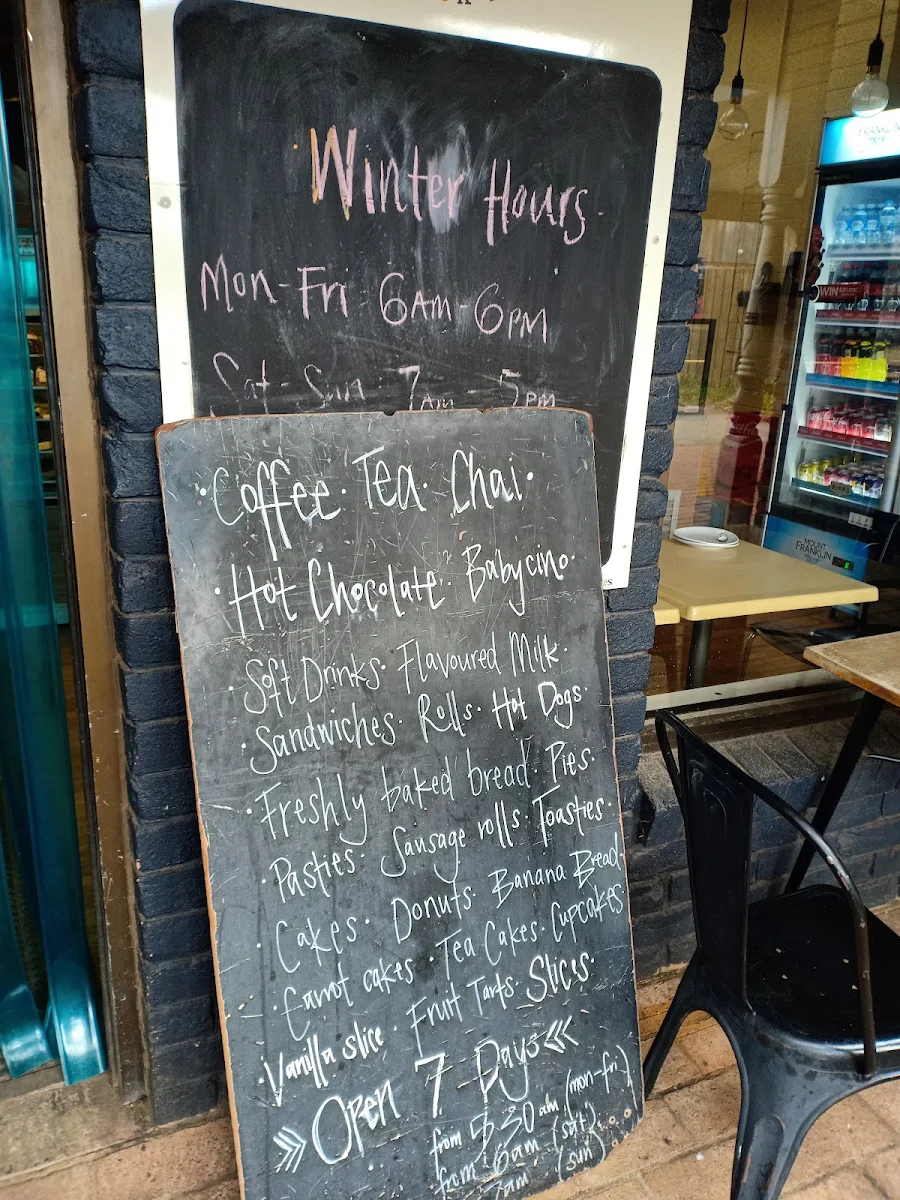 Winter Hours
Mon-Fri 6AM-6PM
Sat-Sun 7AM-5PM
•Coffee•Tea•Chai•
•Hot Chocolate•Babycino•
•Soft Drinks•Flavoured Milk•
•Sandwiches•Rolls•Hot Dogs•
•Freshly baked bread•Pies•
•Pasties•Sausage rolls•Toasties•
•Cakes•Donuts•Banana Bread•
•Carrot cakes•Tea Cakes•Cupcakes
•Vanilla slice•Fruit Tarts•Slices•
»Open 7 Days«
from 5:30am (mon-fri)
from 6am (sat)
7am (sun)
FRANKLIN
WIN
MOUNT
FRANKLIN